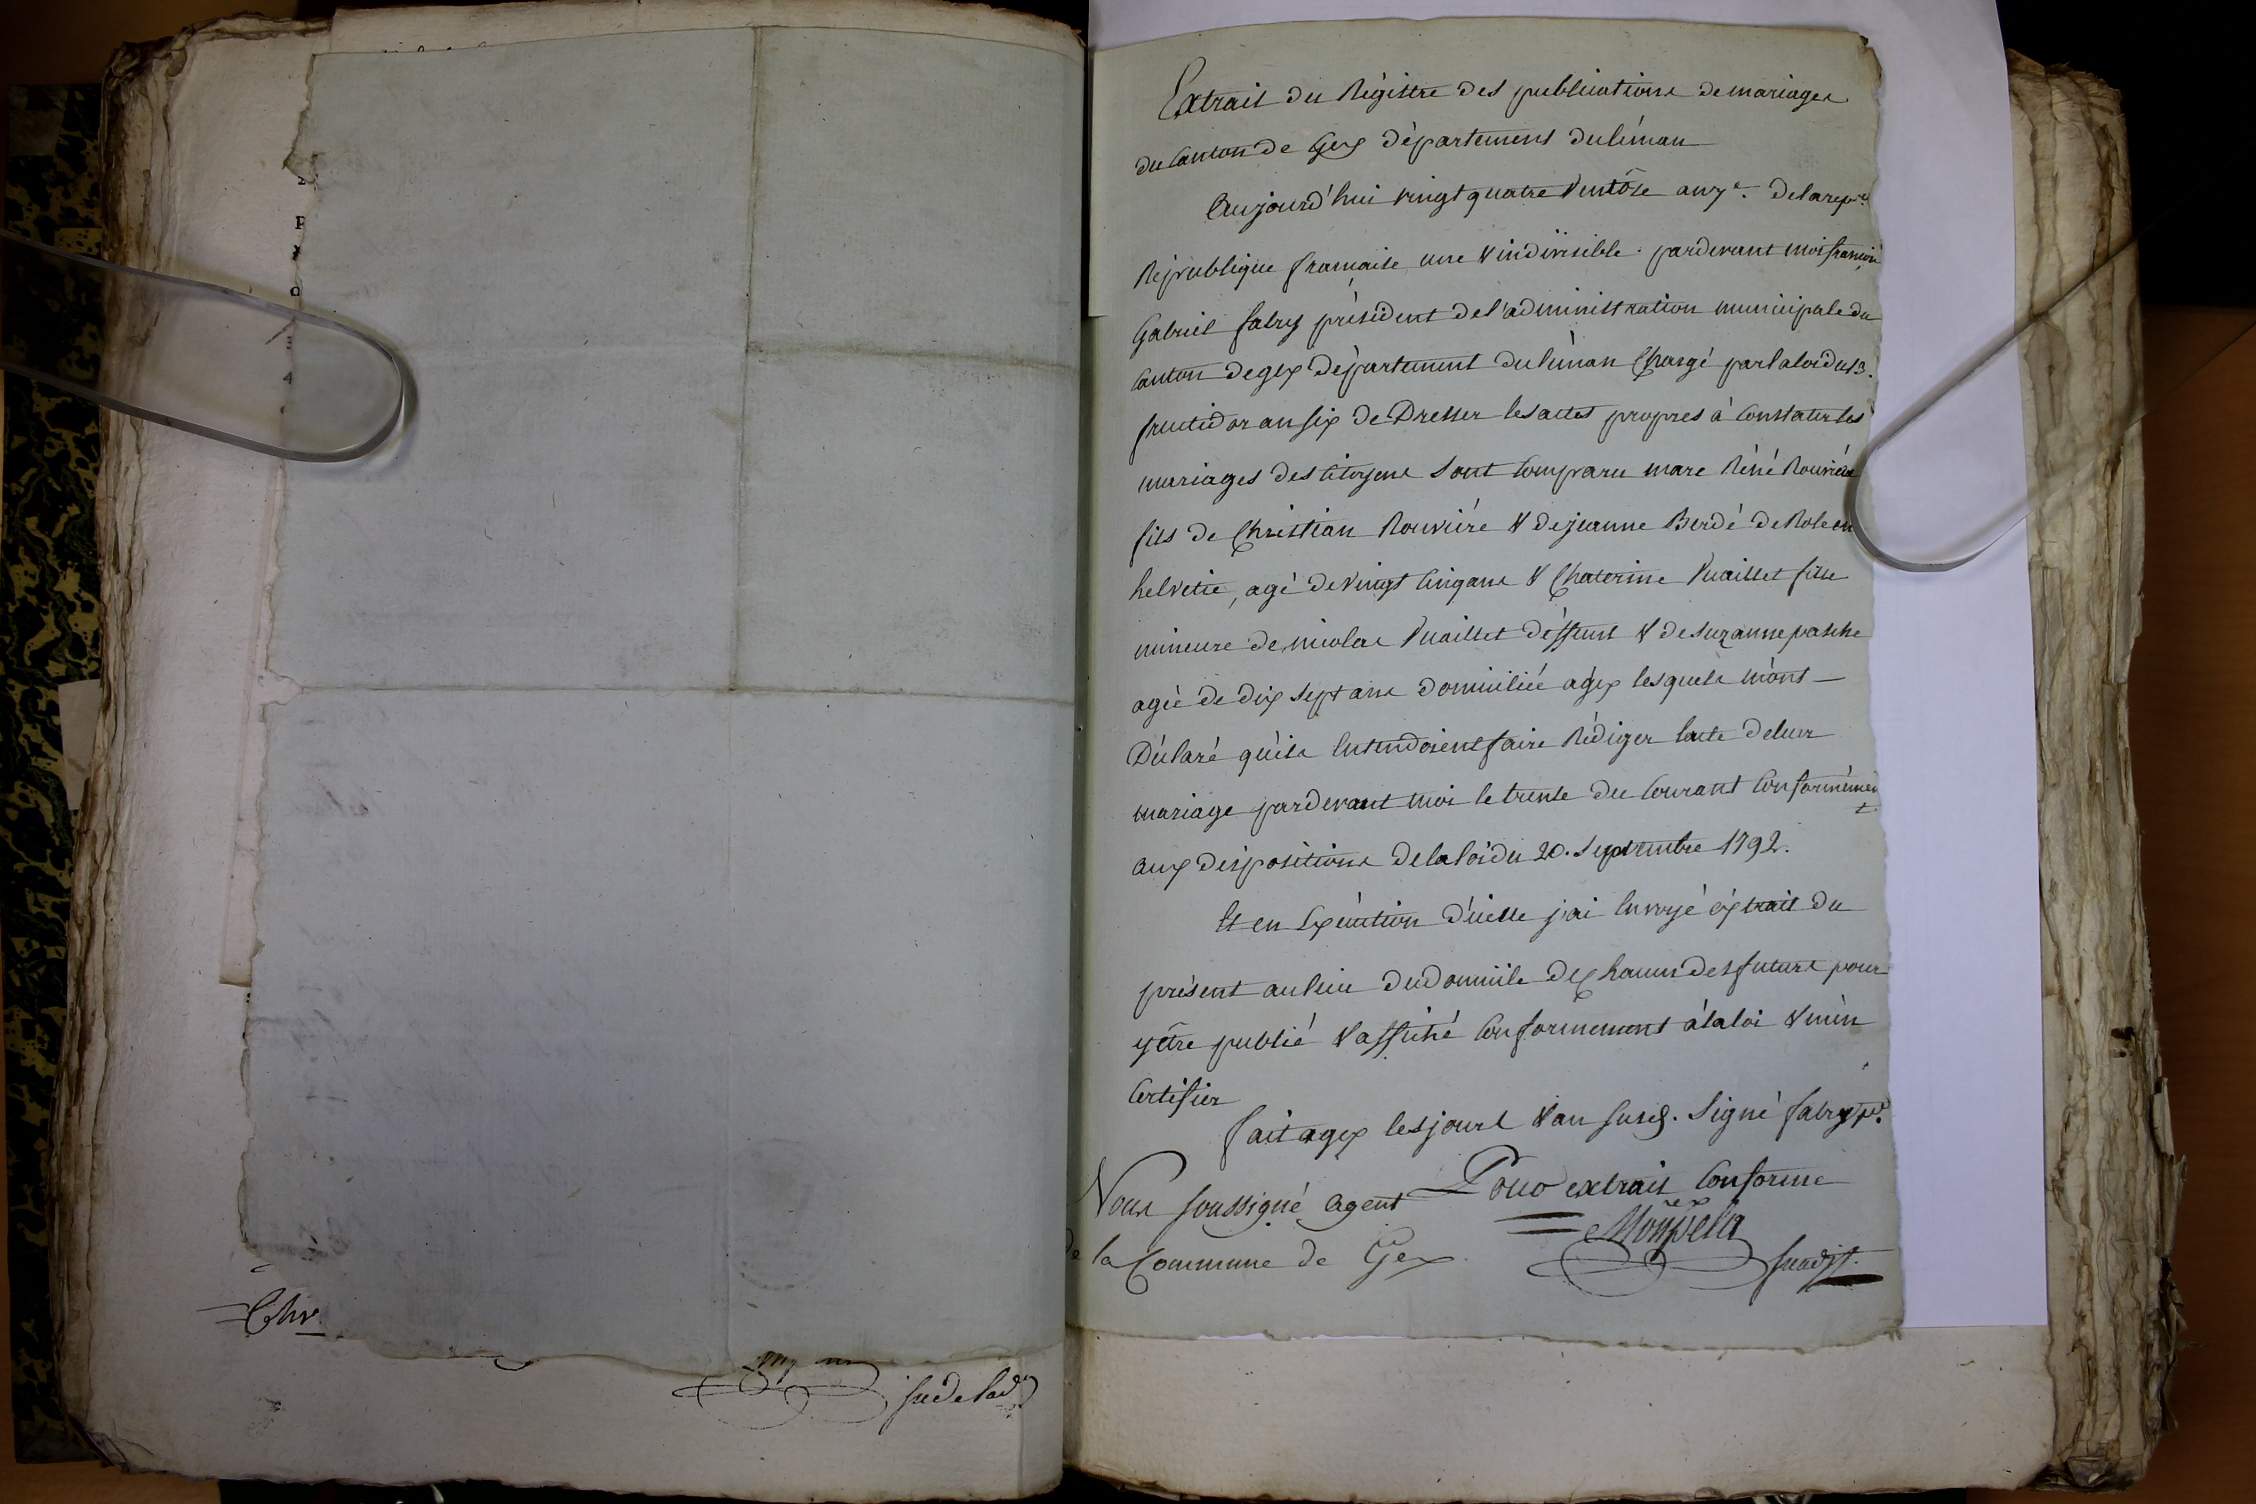 Extrait du Régistre des publications de mariages
du Canton de Gex département du léman
Aujourd'hui vingt quatre Ventôse an 7e. de la repe.
République française une & indivisible. pardevant moi françois
Gabriel fabry président de l'administration municipale du
Canton de gex département du léman Chargé par la loi du 13.
fructidor an six de Dresser les actes propres à Constater les
mariages des Citoyens sont Comparu marc Réné Rouviére
fils de Christian Rouviére & de jeanne Berdé de Role en
helvetie, agé de vingt Cinq ans & Chaterine Vuaillet fille
mineure de nicolas Vuaillet déffunt & de suzanne pasche
agée de dix sept ans domiciliée a gex lesquels m'ont
Déclaré qu'ils Entendoient faire Rédiger lacte de leur
mariage pardevant moi le trente du Courant Conformément
aux dispositions de la loi du 20. septembre 1792.
Et en Exécution d'icelle j'ai Envoyé éxtrait du
présent au lieu du domicile de Chacun des futurs pour
y être publié & affiché Conformement à la loi & m'en
Certifier
fait a gex les jour & an susd. Signé fabry pt.
Pour extrait Conforme
Nous soussigné agent
de la Commune de Gex
Chr